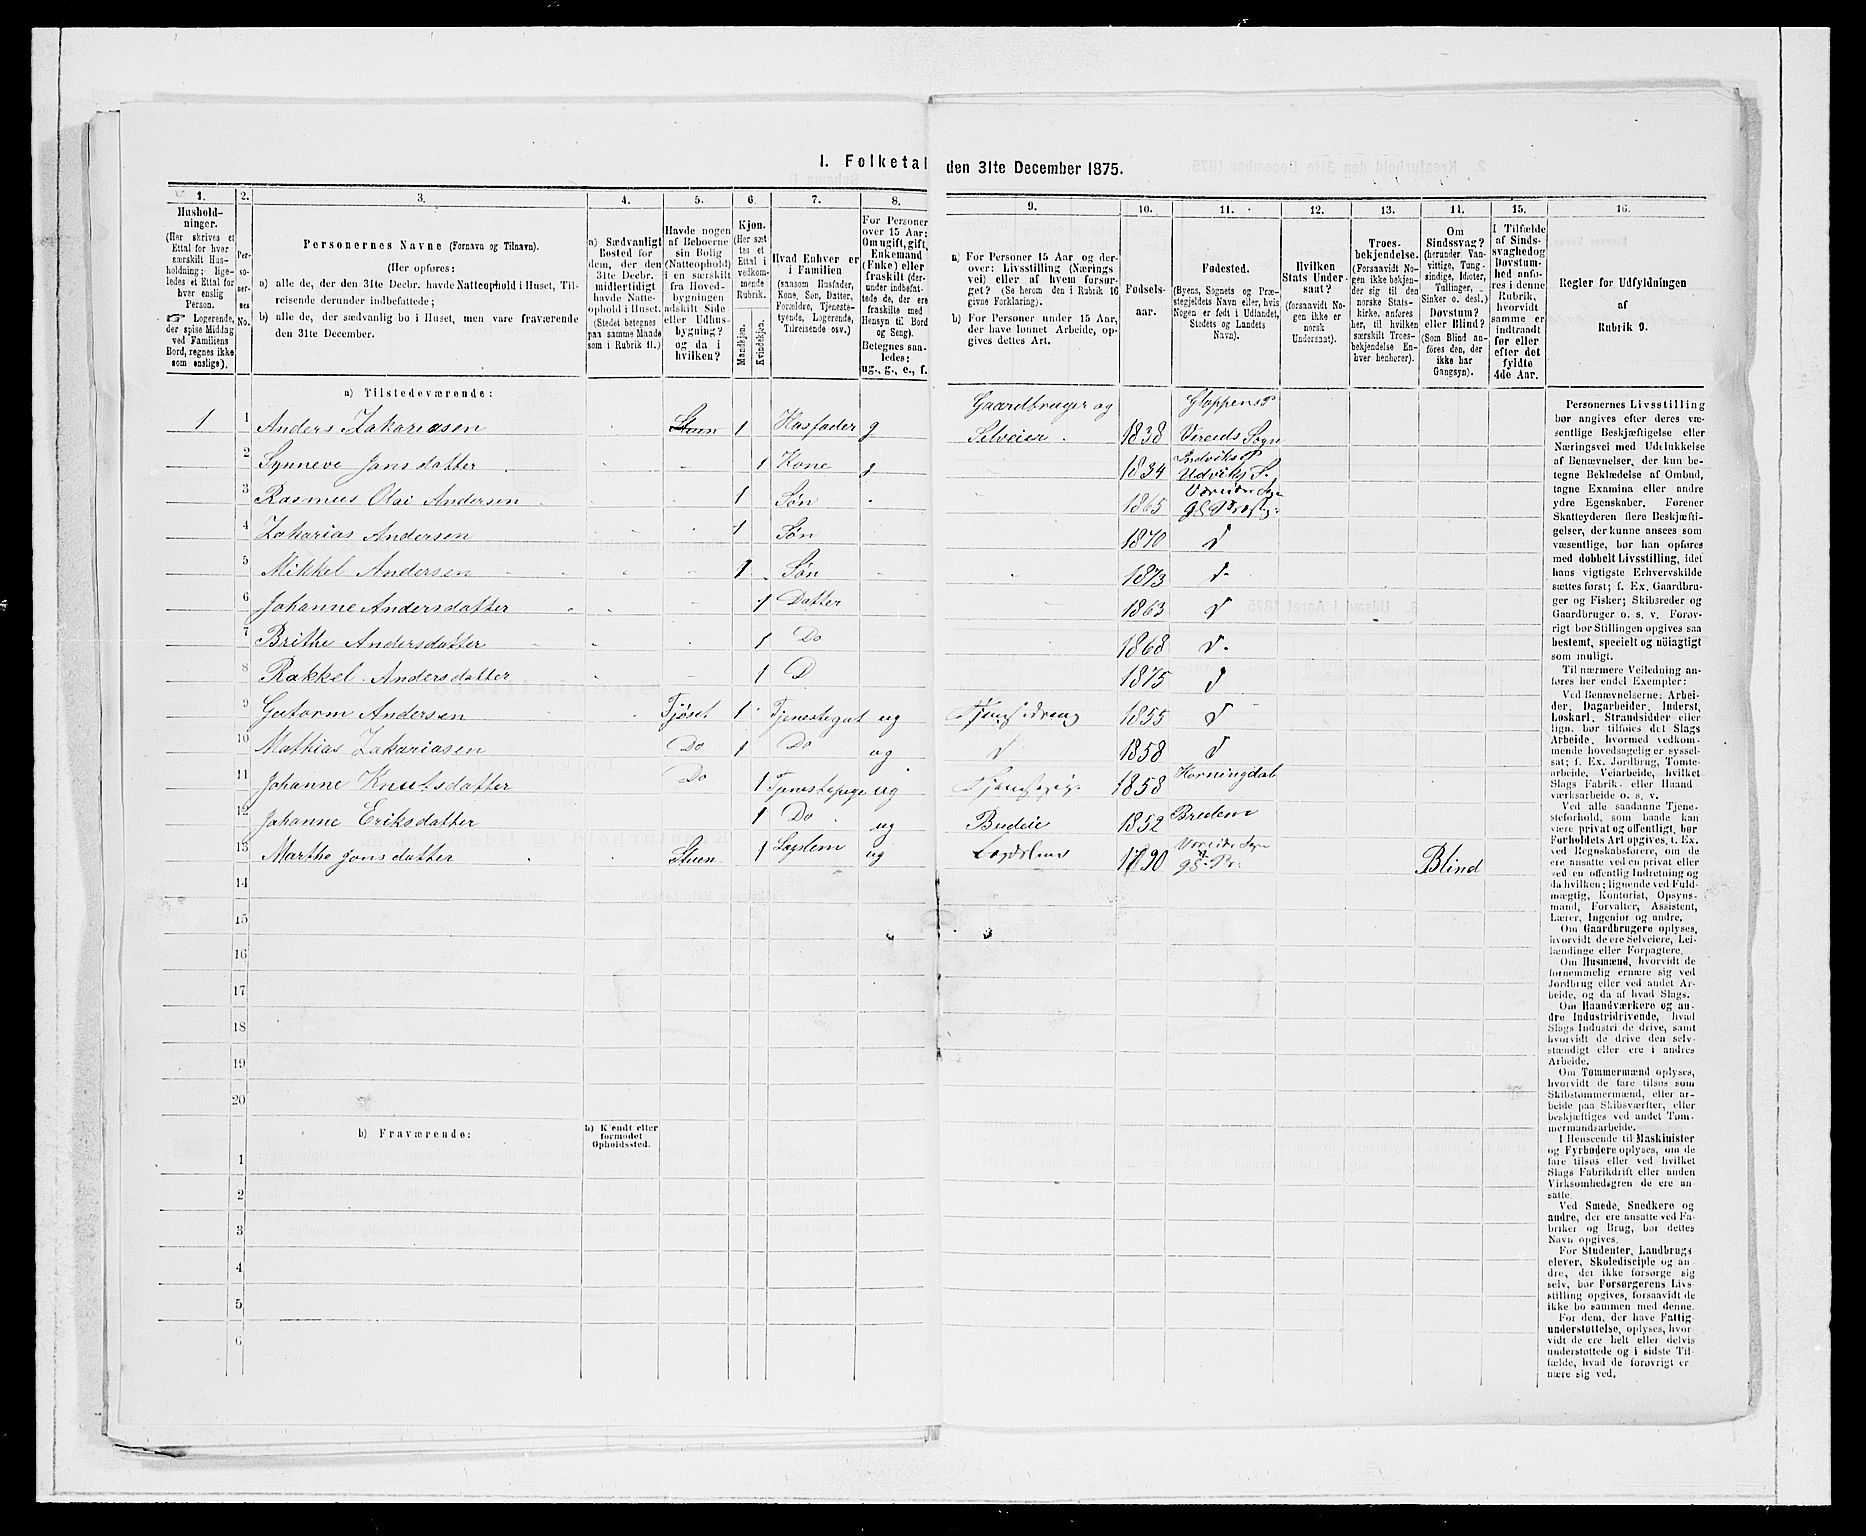 1. Folketal den 31te December 1875.
1. 2. 3. 4. 5. 6. 7. 8. 9. 10. 11. 12. 13. 14. 15. 16.
Hushold-
ninger.
(Her skrives et
Ettal for hver
særskilt Hus-
holdning; lige-
ledes et Ettal for
hver enslig
Person.
Logerende,
der spise Middag
ved Familiens
Bord, regnes ikke
som enslige).
Per-
so-
ner-
nes
No.
Personernes Navne (Fornavn og Tilnavn).
(Her opføres:
a) alle de, der den 31te Decbr. havde Natteophold i Huset, Til-
reisende derunder indbefattede;
b) alle de, der sædvanlig bo i Huset, men vare fraværende
den 31te December.
a) Sædvanligt
Bosted for
dem, der den
31te Decbr.
midlertidigt
havde Natte-
ophold i Huset.
(Stedet betegnes
paa samme Maade
som i Rubrik 11.)
Havde nogen
af Beboerne
sin Bolig
(Natteophold)
i en særskilt
fra Hoved-
bygningen
adskilt Side
eller Udhus-
bygning?
og da i
hvilken?
Kjøn.
(Her sæt
tes et
Ettal i
vedkom-
mende
Rubrik.
Mandkjøn.
Kvindekjøn.
Hvad Enhver er
i Familien
(saasom Husfader,
Kone, Søn, Datter,
Forældre, Tjeneste-
tyende, Logerende,
Tilreisende osv.)
For Personer
over 15 Aar:
Om ugift, gift,
Enkemand
(Enke) eller
fraskilt (der-
under indbefat-
tede de, der ere
fraskilte med
Hensyn til Bord
og Seng).
Betegnes saa-
ledes:
ug., g., e., f.
a) For Personer 15 Aar og der-
over: Livsstilling (Nærings
vei) eller af hvem forsør-
get? (Se herom den i Rubrik 16
givne Forklaring).
b) For Personer under 15 Aar,
der have lønnet Arbeide, op-
gives dettes Art.
Fødsels-
aar.
Fødested.
(Byens, Sognets og Præ-
stegjeldets Navn eller, hvis
Nogen er født i Udlandet,
Stedets og Landets
Navn).
Hvilken
Stats Under-
saat?
(forsaavidt No-
gen ikke er
norsk
Undersaat).
Troes-
bekjendelse.
(Forsaavidt No-
gen ikke bekjen-
der sig til den
norske Stats-
kirke, anføres
her, til hvilken
særskilt Troes-
bekjendelse En-
hver henhører).
Om
Sindssvag?
(herunder Van-
vittige, Tung-
sindige, Idioter,
Tullinger,
Sinker o. desl.)
Døvstum?
eller Blind?
(Som Blind an-
føres den, der
ikke har
Gangsyn).
I Tilfælde
af Sinds-
svaghed og
Døvstum-
hed anfø-
res i denne
Rubrik,
hvorvidt
samme er
indtraadt
før eller
efter det
fyldte
4de Aar.
Regler for Udfyldningen
af
Rubrik 9.
a) Tilstedeværende:
1 1 Anders Zakariasen Stuen 1 Husfader g Gaardbruger og Selveier 1838 Gloppens P Vereids Sogn
2 Synneve Jansdatter 1 Kone g 1834 Indviks P Udviks S.
3 Rasmus Olai Andersen 1 Søn 1865
4 Zakarias Andersen 1 Søn 1870 d
5 Mikkel Andersen 1 Søn 1873 d
6 Johanne Andersdatter 1 Datter 1863 d
7 Brithe Andersdatter 1 Do 1868 d
8 Rakkel Andersdatter 1 D 1875 d
9 Gutorm Andersen Fjøset 1 Tjenestegut ug 1855 d
10 Mathias Zakariasen Do 1 Do ug d 1858 d
11 Johanne Knutsdatter Do 1 Tjenestepige ug 1858 Horningdal
12 Johanne Eriksdatter 1 Do ug Budeie 1852 Bredem
13 Marthe Jonsdatter Stuen 1 Lægslem ug Lægdslem 1790 Blind
14
15
16
17
18
19
20
b) Fraværende:
b) Kjendt eller
formodet
Opholdssted.
1
2
3
4
5
6
Personernes Livsstilling
bør angives efter deres væ-
sentlige Beskjæftigelse eller
Næringsvei med Udelukkelse
af Benævnelser, der kun be-
tegne Beklædelse af Ombud,
tagne Examina eller andre
ydre Egenskaber. Forener
Skatteyderen flere Beskjæfti-
gelser, der kunne ansees som
væsentlige, bør han opføres
med dobbelt Livsstilling, idet
hans vigtigste Erhvervskilde
sættes først; f. Ex. Gaardbru-
ger og Fisker; Skibsreder og
Gaardbruger o. s. v. Forøv-
rigt bør Stillingen opgives saa
bestemt, specielt og nöiagtigt
som muligt.
Til nærmere Veiledning an-
føres her endel Exempler:
Ved Benævnelserne: Arbei-
der, Dagarbeider, Inderst,
Løskarl, Strandsidder eller
lign. bør tilføies det Slags
Arbeide, hvormed vedkom-
mende hovedsagelig er syssel-
sat; f. Ex. Jordbrug, Tomte-
arbeide, Veiarbeide, hvilket
Slags Fabrik- eller Haand
værksarbeide o. s. v.
Ved alle saadanne Tjene-
steforhold, som baade kan
være privat og offentligt, bør
Forholdets Art opgives, t. Ex.
ved Regnskabsførere, om de
ere ansatte ved en privat eller
ved en offentlig Indretning og
da hvilken; lignende ved Fuld-
mægtig, Kontorist, Opsyns-
mand, Forvalter, Assistent,
Lærer, Ingeniør og andre.
Om Gaardbrugere oplyses,
hvorvidt de ere Selveiere, Lei-
lændinge eller Forpagtere.
Om Husmænd, hvorvidt de
fornemmelig ernære sig ved
Jordbrug eller ved andet Ar-
beide, og da af hvad Slags.
Om Haandværkere og an-
dre Industridrivende, hvad
Slags Industri de drive, samt
hvorvidt de drive den selv-
stændigt eller ere i andres
Arbeide.
Om Tømmermænd oplyses,
hvorvidt de fare tilsøs som
Skibstømmermænd, eller ar-
beide paa Skibsværfter, eller
beskjæftiges ved andet Tøm-
mermandsarbeide.
I Henseende til Maskinister
og Fyrbødere oplyses, om de
fare tilsøs eller ved hvilket
Slags Fabrikdrift eller anden
Virksomhedsgren de ere an-
satte.
Ved Smede, Snedkere og
andre, der ere ansatte ved Fa-
briker og Brug, bør dettes
Navn opgives.
For Studenter, Landbrugs
elever, Skoledisciple og an-
dre, der ikke forsørge sig
selv, bør Forsørgerens Livs-
stilling opgives, forsaavidt de
ikke bo sammen med denne.
For dem, der have Fattig-
understøttelse, oplyses, hvor-
vidt de ere helt eller delvis
understøttede og i sidste Til-
fælde, hvad de forøvrigt er
nære sig ved.